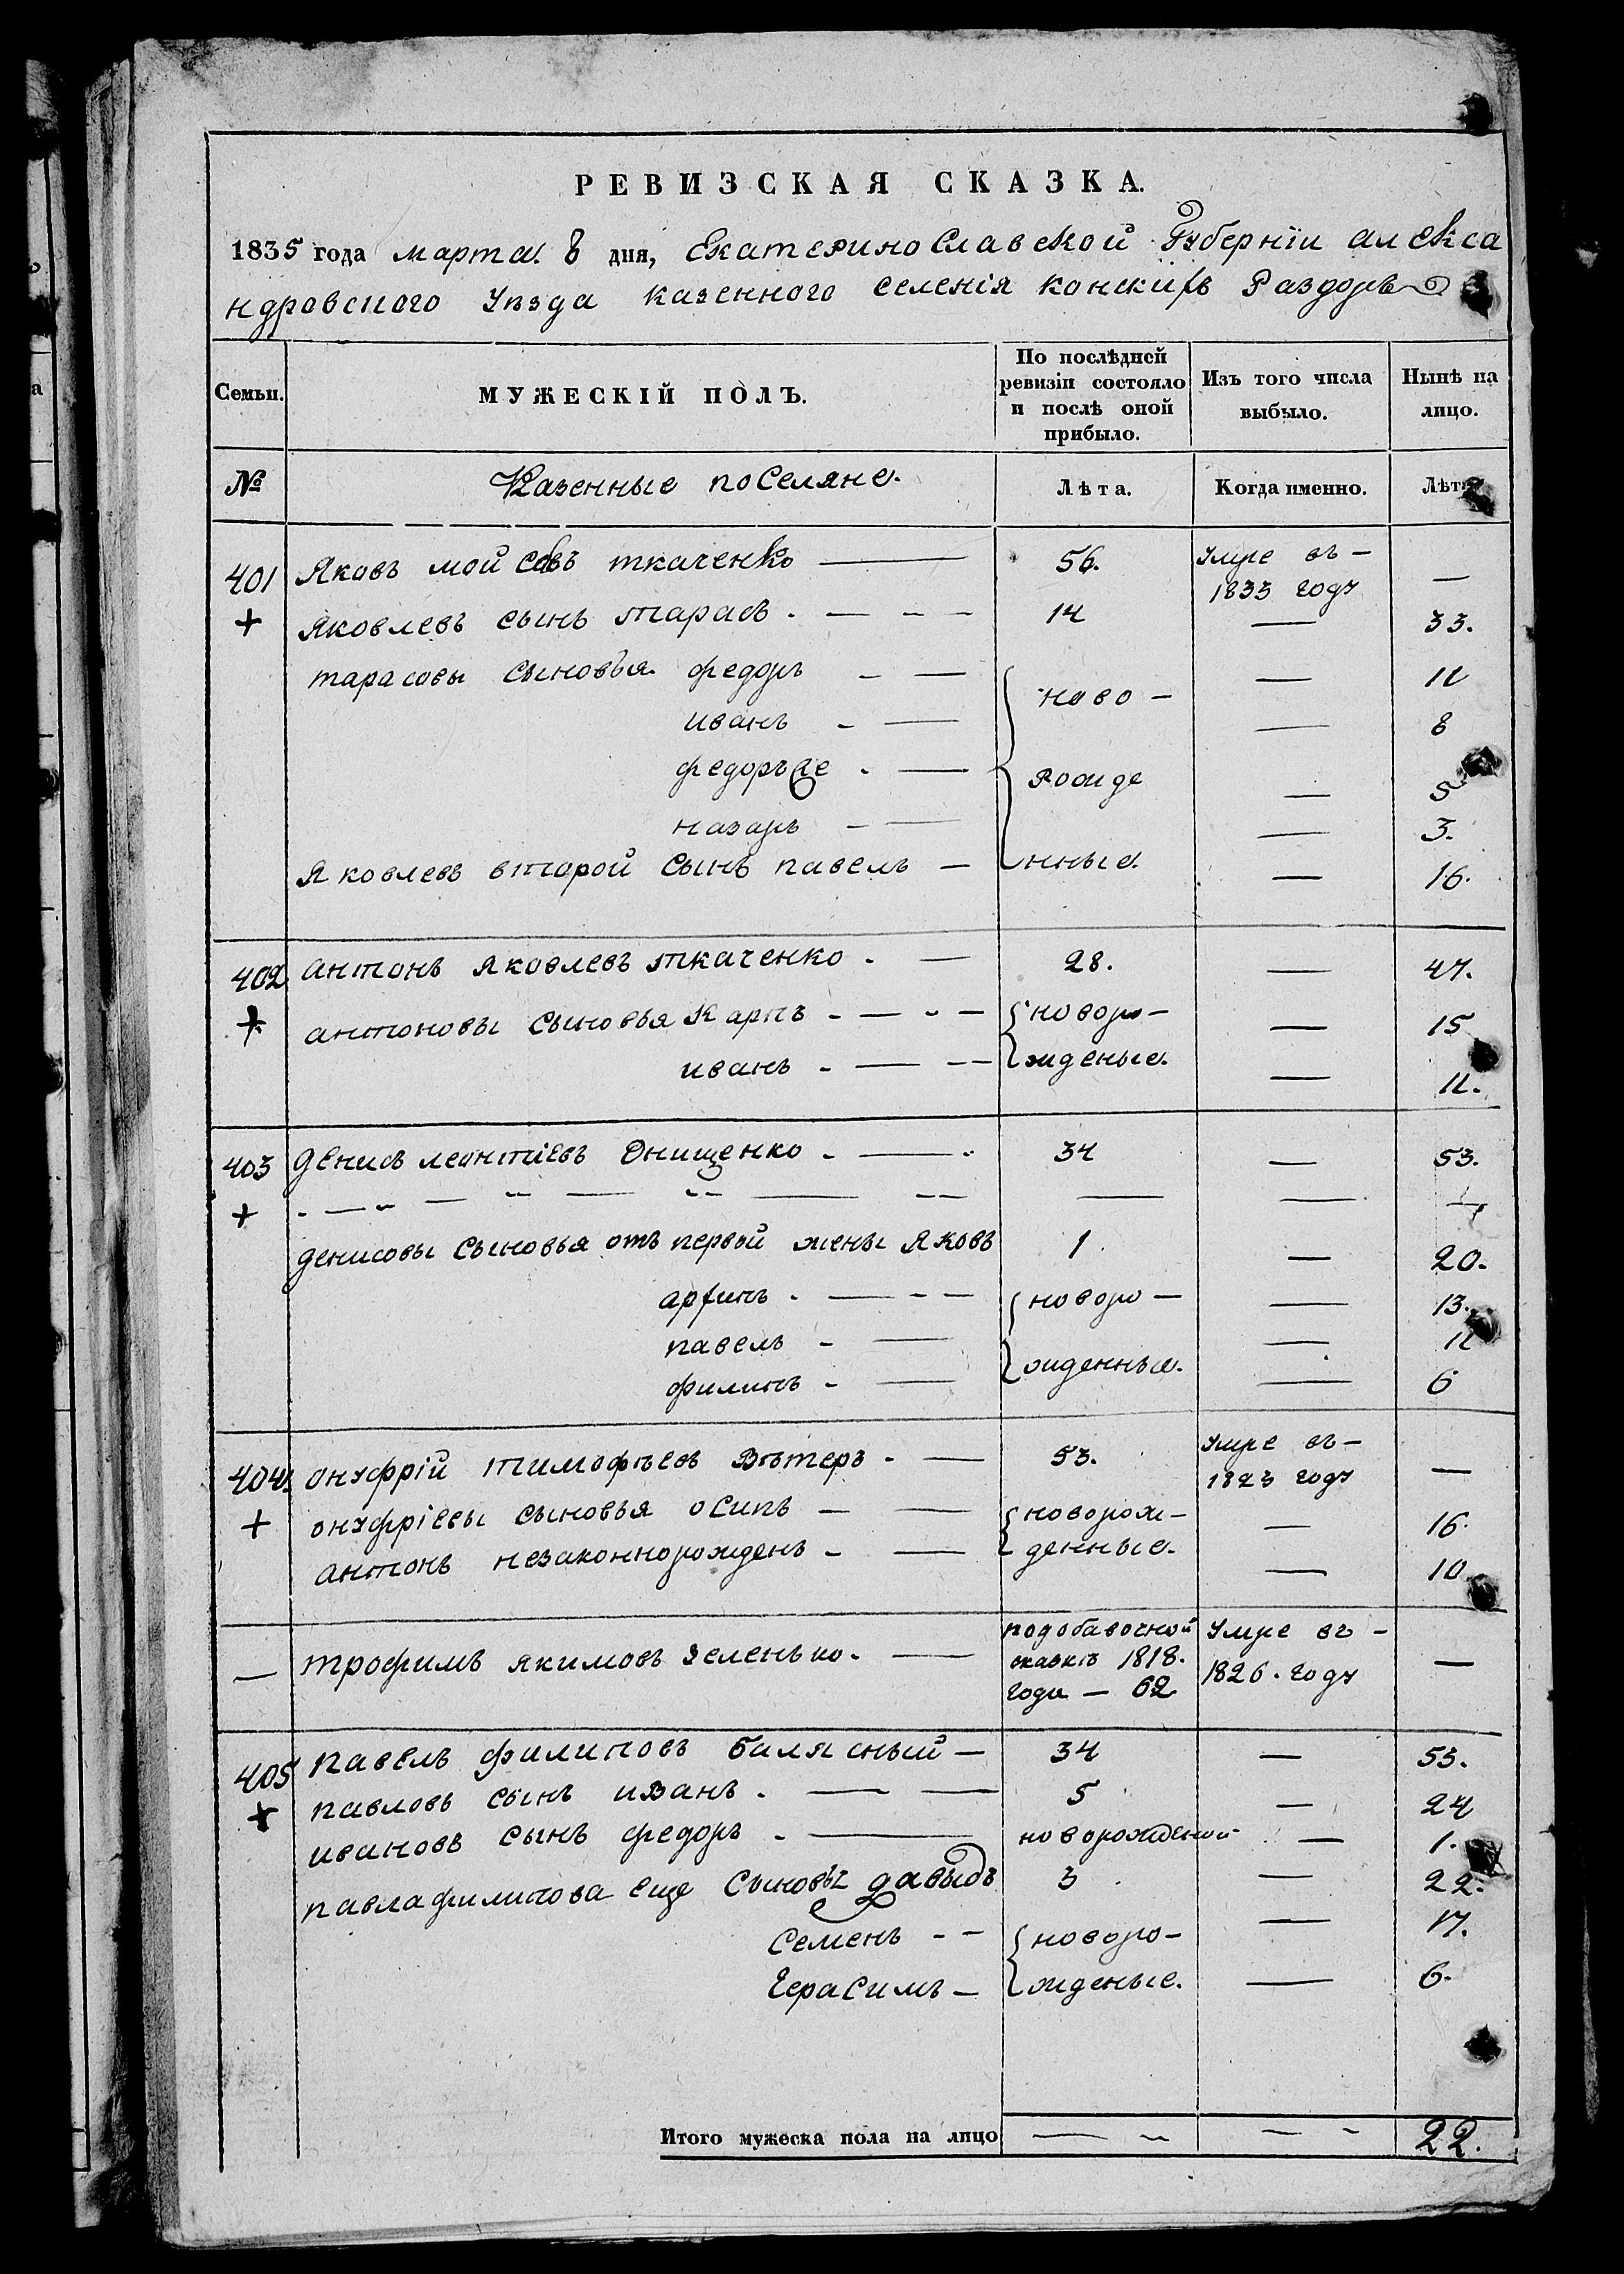 РЕВИЗСКАЯ СКАЗКА.
1835 года марта 8 дня, Екатеринославской Губерніи алекса
ндровского Уѣзда казенного селенія конскихъ Раздоръ
Семьи. МУЖЕСКІЙ ПОЛЪ. По послѣдней ревизіи состояло и послѣ оной прибыло. Изъ того числа выбыло. Нынѣ на лицо.
№ Казенные поселяне. Лѣта. Когда именно. Лѣта
401 Яковъ мойсѣвъ ткаченко — 56. Умре въ — 1833 году —
+ Яковлевъ сынъ тарасъ. — 14 — 33.
тарасовы сыновья федоръ — ново — — 11
иванъ — — 8
федоръ же — рожде — 5
назаръ — — 3.
Яковлевъ второй сынъ павелъ — нные. — 16.
402 антонъ яковлевъ ткаченко. — 28. — 47.
+ антоновы сыновья карпъ — новоро — — 15
иванъ — жденые. — 11.
403 денисъ леонтіевъ Онищенко. — 34 — 53.
+ — — — —
денисовы сыновья отъ первой жены яковъ 1 — 20.
архипъ. — новоро — — 13.
павелъ — — 11
филипъ — жденные. — 6
404. онуфрій тимофѣевъ Вѣтеръ. — 53. Умре въ — 1823 году —
+ онуфріевы сыновья осипъ — новорож — — 16.
антонъ незаконнорожденъ — денные. — 10.
— трофимъ якимовъ зеленько. — подобавочной сказкѣ 1818. года — 62 Умре въ — 1826. году —
405 павелъ филиповъ балясный — 34 — 53.
+ павловъ сынъ иванъ. — 5 — 24
ивановъ сынъ федоръ. — новорожденой — 1.
павла филипова еще сыновья давыдъ 3 — 22.
Семенъ — новоро — — 17.
Герасимъ — жденые. — 6.
Итого мужеска пола на лицо — — 22.